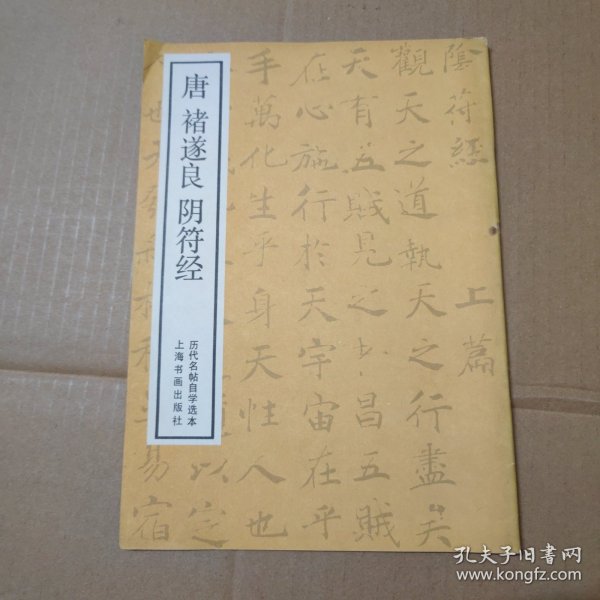 唐 褚遂良 阴符经
历代名帖自学选本
上海书画出版社
陰符經 上篇
觀天之道執天之行盡矣
天有五賊見之者昌五賊
在心施行於天宇宙在乎
手萬化生乎身天性人也
以定
也天發
易宿
孔夫子旧书网
www.kongfz.com